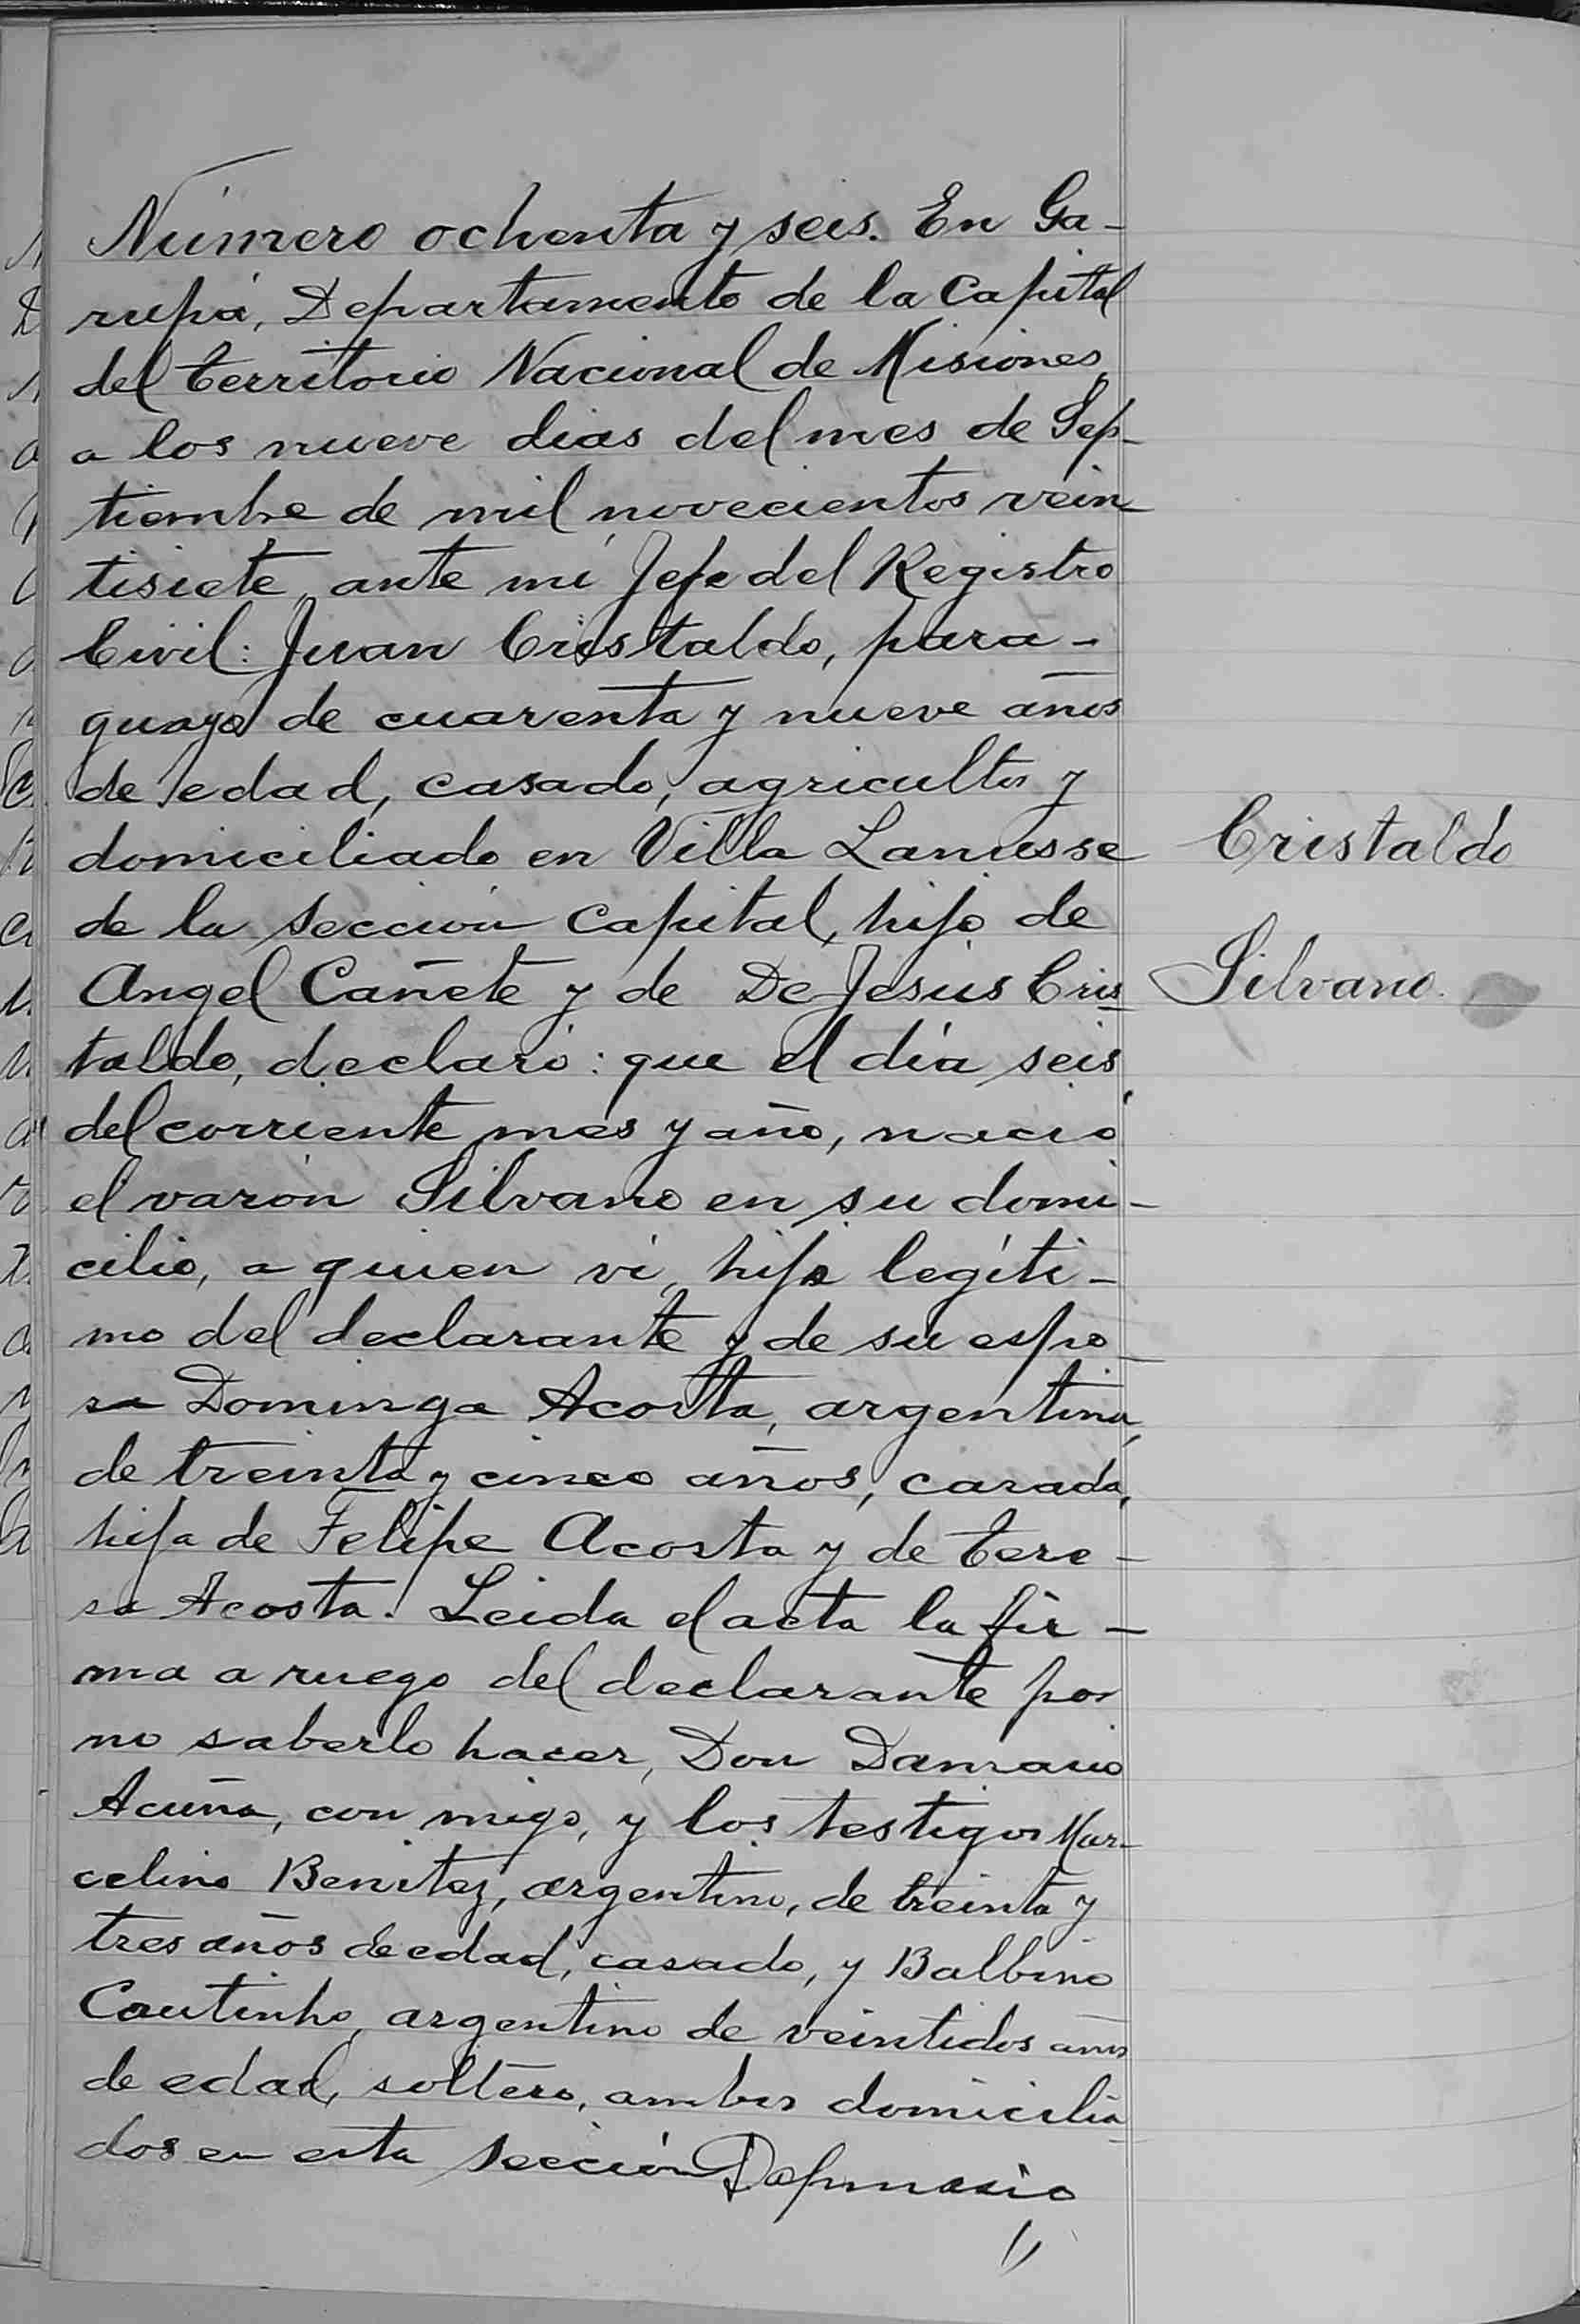 Número ochenta y seis. En Ga-
rupá, Departamento de la Capital
del Territorio Nacional de Misiones,
a los nueve dias del mes de Sep-
tiembre de mil novecientos vein
tisiete, ante mi Jefe del Registro
Civil: Juan Cristaldo, para-
guayo de cuarenta y nueve años
de edad, casado, agricultor y
domiciliado en Villa Lanusse
de la sección Capital, hijo de
Angel Cañete y de De Jesús Cris
taldo, declaró: que el día seis
del corriente mes y año, nació
el varón Silvano en su domi-
cilio, a quien ví, hijo legíti-
mo del declarante y de su espo-
sa Dominga Acosta, argentina,
de treinta y cinco años, casada,
hija de Felipe Acosta y de Tere-
sa Acosta. Leida el acta la fir-
ma a ruego del declarante por
no saberlo hacer, Don
Acuña, con migo, y los testigos Mar-
celino Benitez, argentino, de treinta y
tres años de edad, casado, y Balbino
Coutinho, argentino de veintidos años
de edad, soltero, ambos domicilia
dos en esta sección
Cristaldo
Silvano.